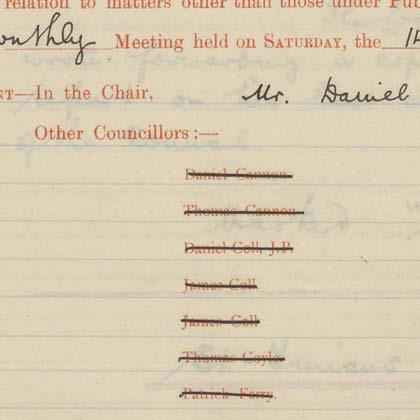 relation to matters other than those under Pub
onthly Meeting held on SATURDAY, the 14
NT—In the Chair, Mr. Daniel
Other Councillors:—
Daniel Cannon.
Thomas Cannon.
Daniel Coll, J.P.
James Coll
James Coll
Thomas Coyle.
Patrick Ferry.